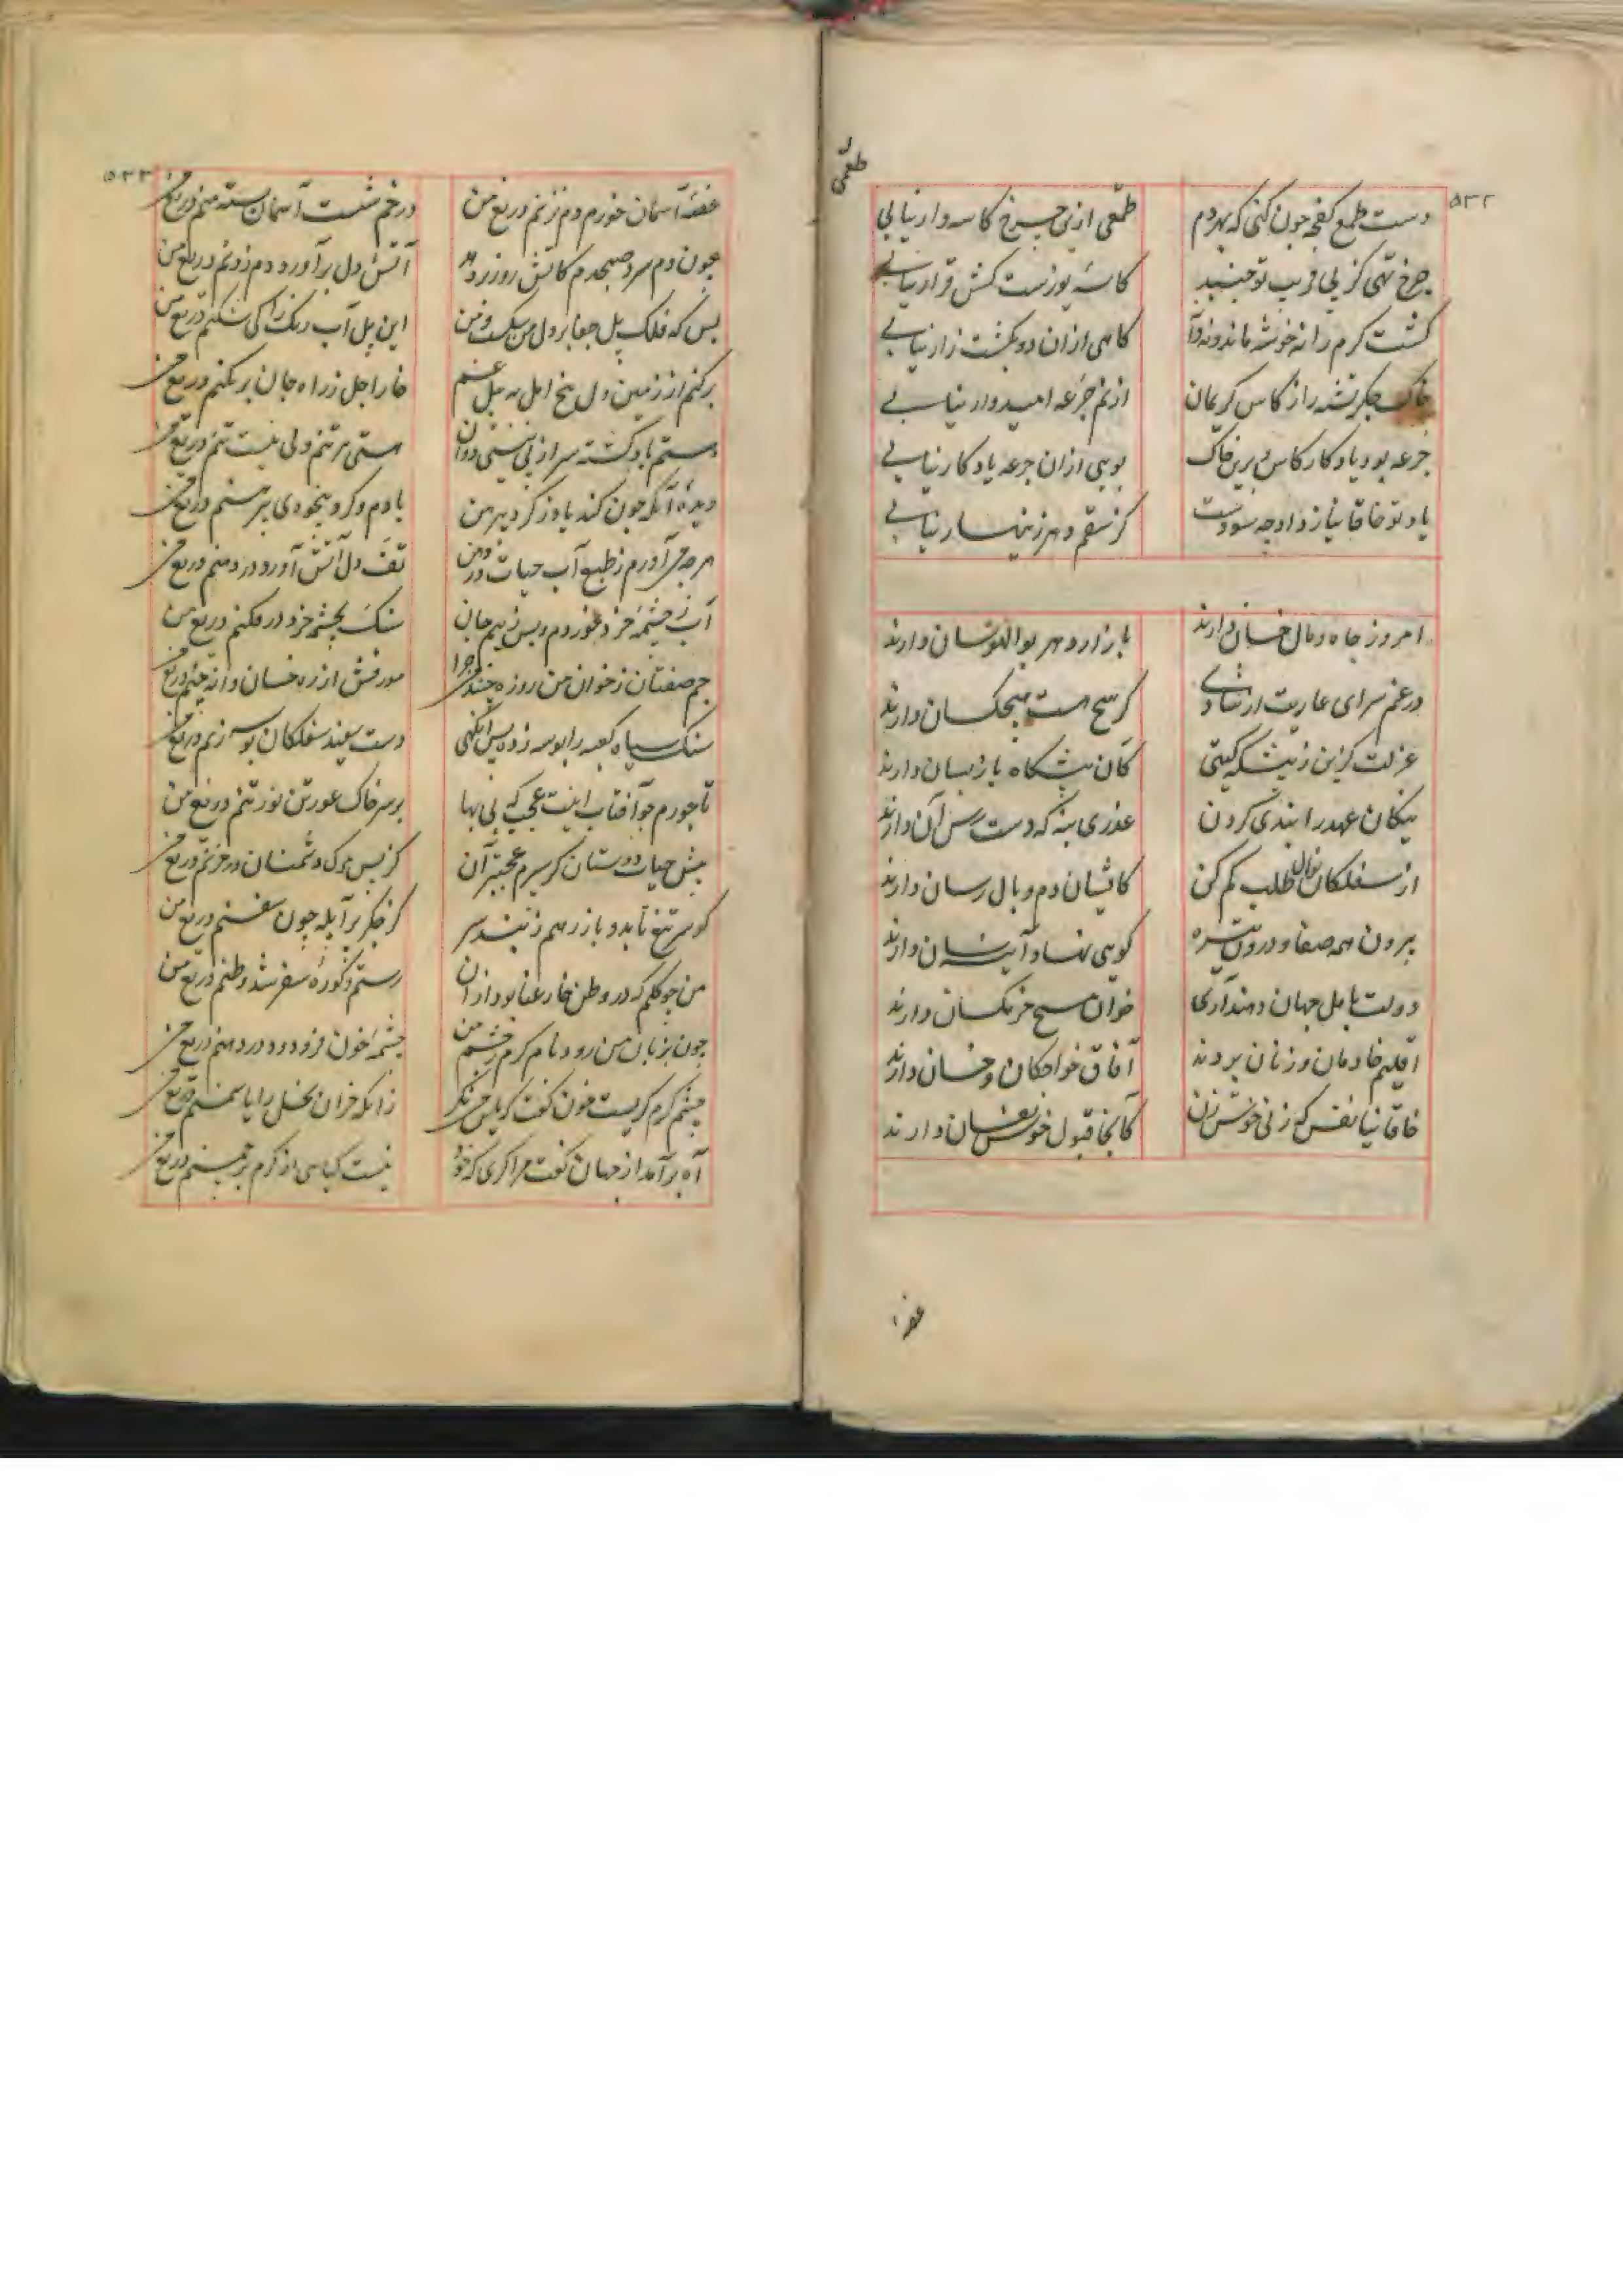 ۵۳۲
دست طمع کفچه چون کنی که بهر دم طعمی ازین چرخ کاسه وار نیابی
چرخ تهی کز پی فریب تو جنبد کاسه یوزست کش قرار نیابی
کشت کرم را نه خوشه ماند و نه دانه کاهی ازان دو بکشت زار نیابی
خاک جکر تشنه را ز کاس کریمان از نم جرعه امیدوار نیابی
جرعه بود یادکار کاس برین خاک بویی ازان جرعه یادکار نیابی
یاد تو خاقانیا ز داد چه سودست کز ستم دهر زینهار نیابی
امروز جاه و مال خسان دارند بازار دهر بوالهوسان دارند
در غم سرای عاریت از شادی کر هیچ هست هیچکسان دارند
عزلت کزین ز پیشکه کیتی کان پیشکاه بازپسان دارند
نیکان عهد را بندی کردن عذری بنه که دست رس آن دارند
از سفلکان نوال طلب کم کن کاتشان دم وبال رسان دارند
بیرون همه صفا و درون تیره کویی نهاد آینه سان دارند
دولت باهل جهان دهند آری خوان مسیح خرمکسان دارند
اقلیم خادمان و زنان بردند آفاق خواجکان و خسان دارند
خاقانیا نفس که زنی خوش زن کانجا قبول خوش نفسان دارند
۵۳۳
غصه آسمان خورم دم نزنم دریغ من در خم شست آسمان بسته منم دریغ من
چون دم سرد صبحدم کاتش روز بردمد آتش دل برآورد دم زدنم دریغ من
بس که فلک پل جفا بر دل من شکست و من این پل آب رنک را کی شکنم دریغ من
برکنم از زمین دل بیخ امل به بیل غم خار اجل ز راه جان برنکنم دریغ من
هستم باد کشته سر از پی نیستی دوان هستی بر تنم ولی نیست تنم دریغ من
دیده آنکه چون کند باد ز کرد پیرهن بادم و کرد بیخودی پیرهنم دریغ من
هر چه برآورم ز طبع آب حیات در دهن تف دل آتش آورد در دهنم دریغ من
آب ز چشمه خرد خوردم و پس ز بیم جان سنک بچشمه خرد درفکنم دریغ من
جم صفتان ز خوان من روزه چنند و من چرا مورفش از ره خسان دانه چنم دریغ من
سنک سیاه کعبه را بوسه زده پس آنکهی دست سفید سفلکان بوسه زنم دریغ من
تاجورم چو آفتاب اینت عجب که بی بها بر سر خاک عور تن نور تنم دریغ من
پیش حیات دوستان کر سپرم عجبتر آن کز پس مرک دشمنان در حزنم دریغ من
کوهر تیغ تابد و باز زهم زنند سر کز جکر پر آبله چون سفنم دریغ من
من چو کلم که در وطن خار عنا بود ازان رستم و کوره سفر شد وطنم دریغ من
چون بزبان من رود نام کرم ز چشم من چشمه خون فرو دود در دهنم دریغ من
چشم کرم کریست خون کفت کریستن نکر زانکه خزان بخل را یاسمنم دریغ من
آه برآمد از جهان کفت مرا کری که خود نیست کیاهی از کرم بر چمنم دریغ من